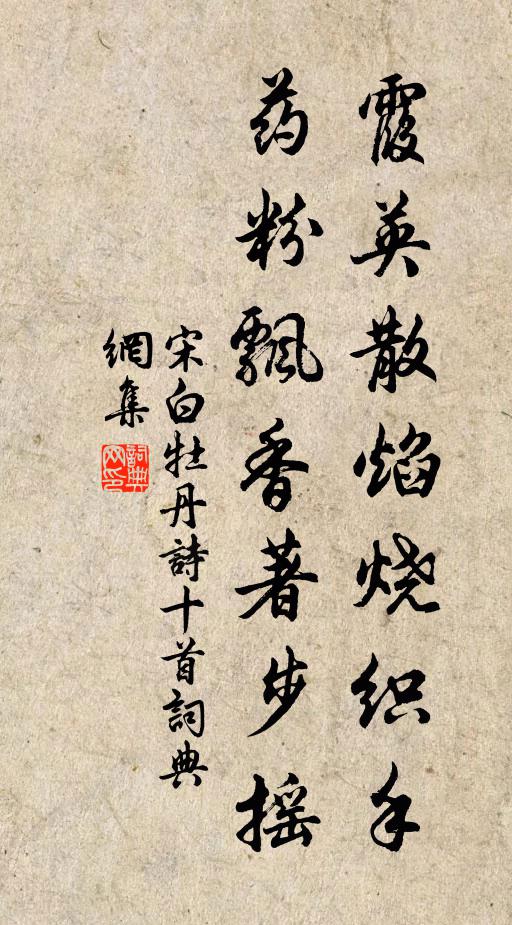 霞英散焰烧织手
药粉飘香著步摇
宋白牡丹詩十首詞典
網集
詞典
网印